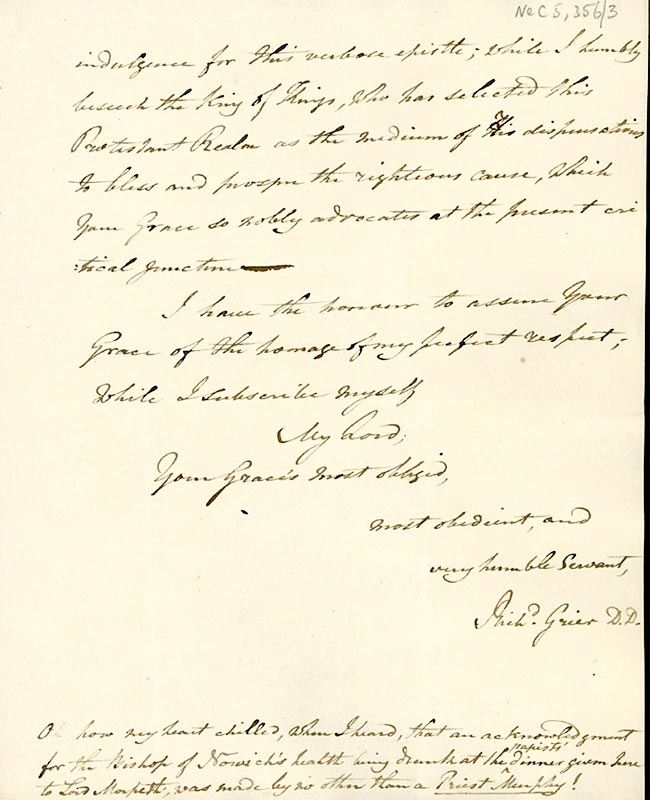 NeC 5,356/3
indulgence for this verbose epistle; while I humbly
beseech the King of Kings, who has selected this
Protestant Realm as the medium of His dispensations
to bless and prosper the righteous cause, which
Your Grace so nobly advocates at the present cri
:tical juncture
I have the honour to assure Your
Grace of the homage of my perfect respect;
While I subscribe myself
My Lord,
Your Grace's most obliged,
most obedient, and
very humble Servant,
Rich^d. Grier D.D.
Oh how my heart chilled, when I heard, that an acknowledgment
for the Bishop of Norwich's health being drunk at the papists' dinner given here
to Lord Morpeth, was made by no other than a Priest Murphy!